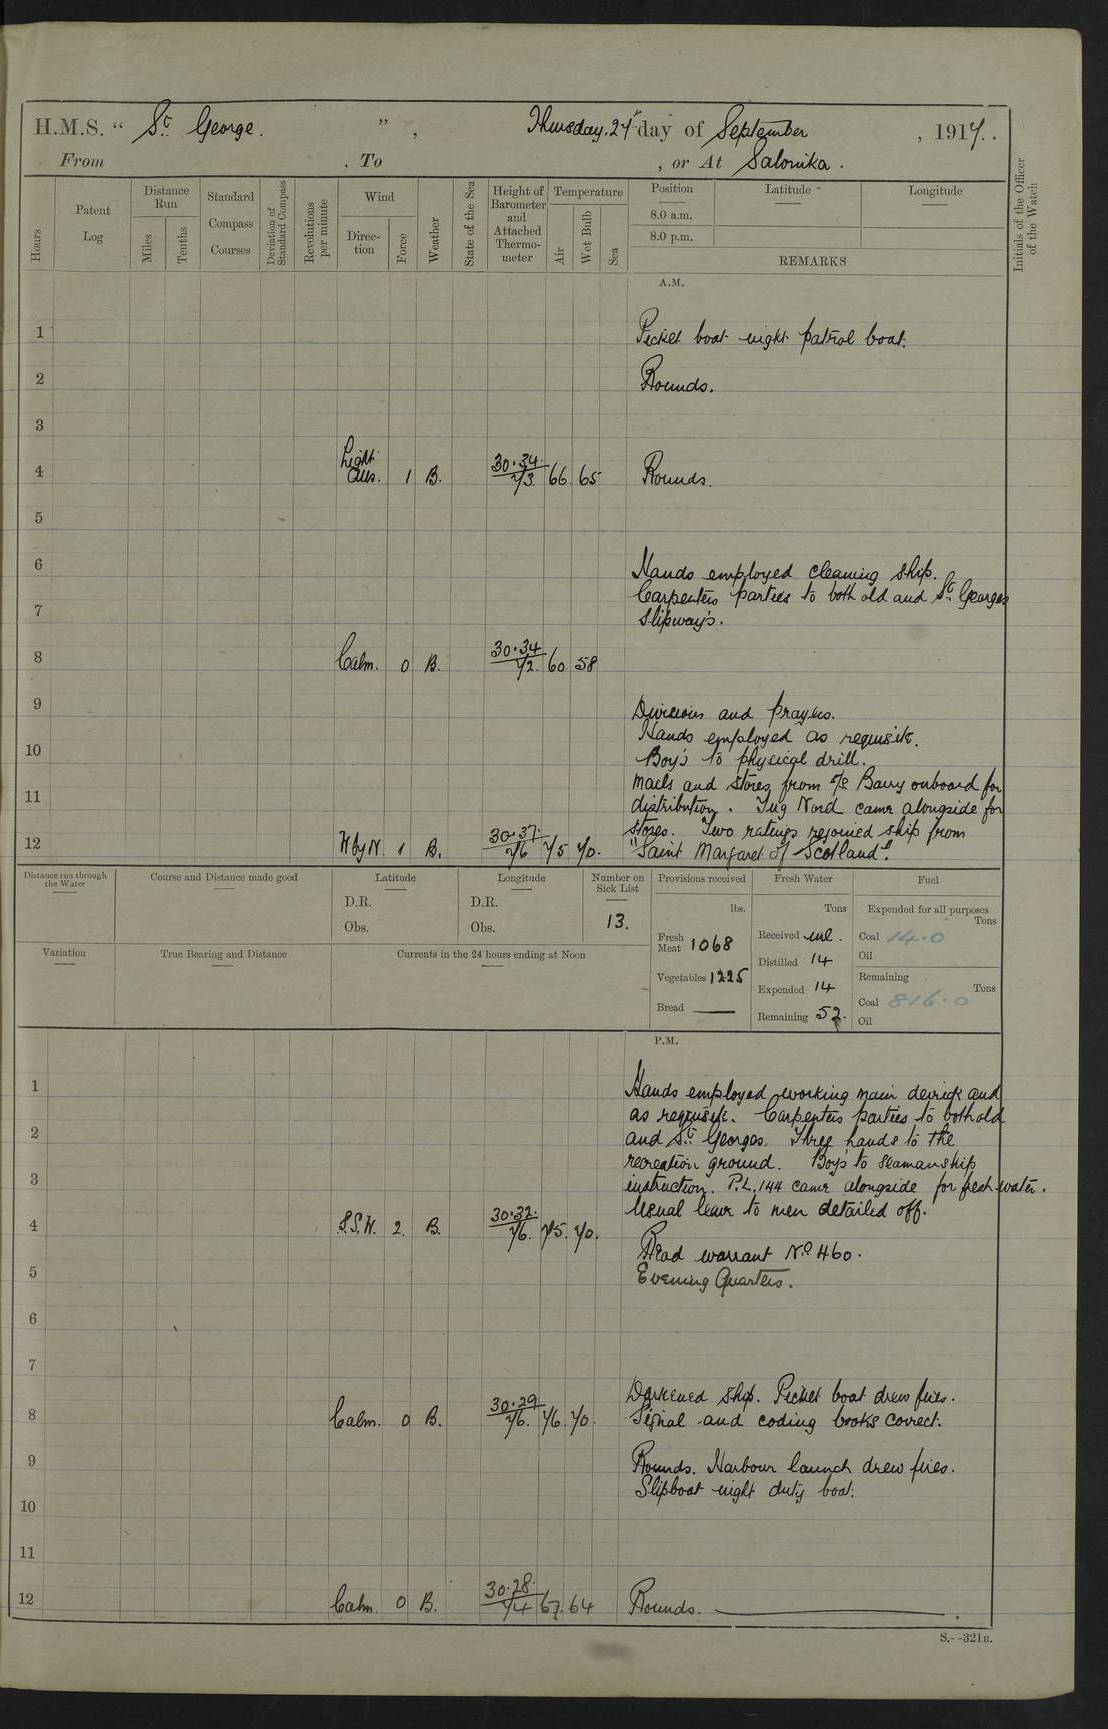 H.M.S. " St George. " , Thursday, 27th day of September , 1917.
From , To , or At Salonika.
Hours
Patent Log
Distance Run
Miles
Tenths
Standard Compass Courses
Deviation of Standard Compass
Revolutions per minute
Wind
Direction
Force
Weather
State of the Sea
Height of Barometer and Attached Thermometer
Temperature
Air
Wet Bulb
Sea
Position
Latitude
Longitude
8.0 a.m.
8.0 p.m.
REMARKS
Initials of the Officer of the Watch
A.M.
1 Picket boat night patrol boat.
2 Rounds.
3
4 Light Airs. 1 B. 30.34 73 66 65 Rounds.
5
6 Hands employed cleaning ship.
Carpenters parties to both old and St Georges
7 Slipway's.
8 Calm. 0 B. 30.34 72 60 58
9 Divisions and prayers.
Hands employed as requisite.
10 Boy's to physical drill.
Mails and stores from S/S Barry onboard for
11 distribution. Tug Nord came alongside for
stores. Two ratings rejoined ship from
12 W by N. 1 B. 30.37 76 75 70. "Saint Margaret of Scotland".
Distance run through the Water
Course and Distance made good
Latitude
D.R.
Obs.
Longitude
D.R.
Obs.
Number on Sick List
13.
Provisions received
lbs.
Fresh Meat 1068
Vegetables 1225
Bread —
Fresh Water
Tons
Received nil.
Distilled 14
Expended 14
Remaining 52.
Fuel
Expended for all purposes
Tons
Coal 14.0
Oil
Remaining
Tons
Coal 816.0
Oil
Variation
True Bearing and Distance
Currents in the 24 hours ending at Noon
P.M.
1 Hands employed working main derrick and
as requisite. Carpenters parties to both old
2 and St Georges. Three hands to the
recreation ground. Boys to seamanship
3 instruction. P.L. 144 came alongside for fresh water.
Usual leave to men detailed off.
4 S.S.W. 2. B. 30.32 76. 75. 70.
Read warrant No 460.
5 Evening Quarters.
6
7
Darkened ship. Picket boat drew fires.
8 Calm. 0 B. 30.29 76. 76. 70. Signal and coding books correct.
9 Rounds. Harbour launch drew fires.
Slipboat night duty boat.
10
11
12 Calm. 0 B. 30.28 74 67. 64 Rounds.
S.--321B.